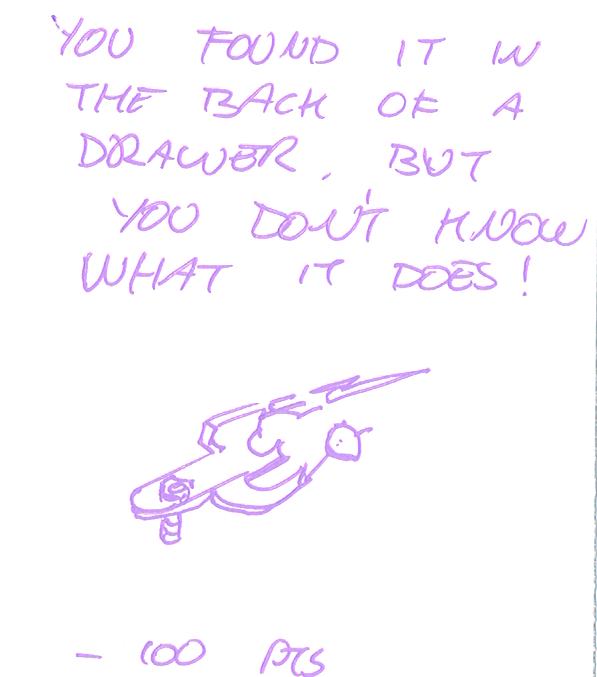 YOU FOUND IT IN
THE BACK OF A
DRAWER, BUT
YOU DON'T KNOW
WHAT IT DOES!
- 100 PTS